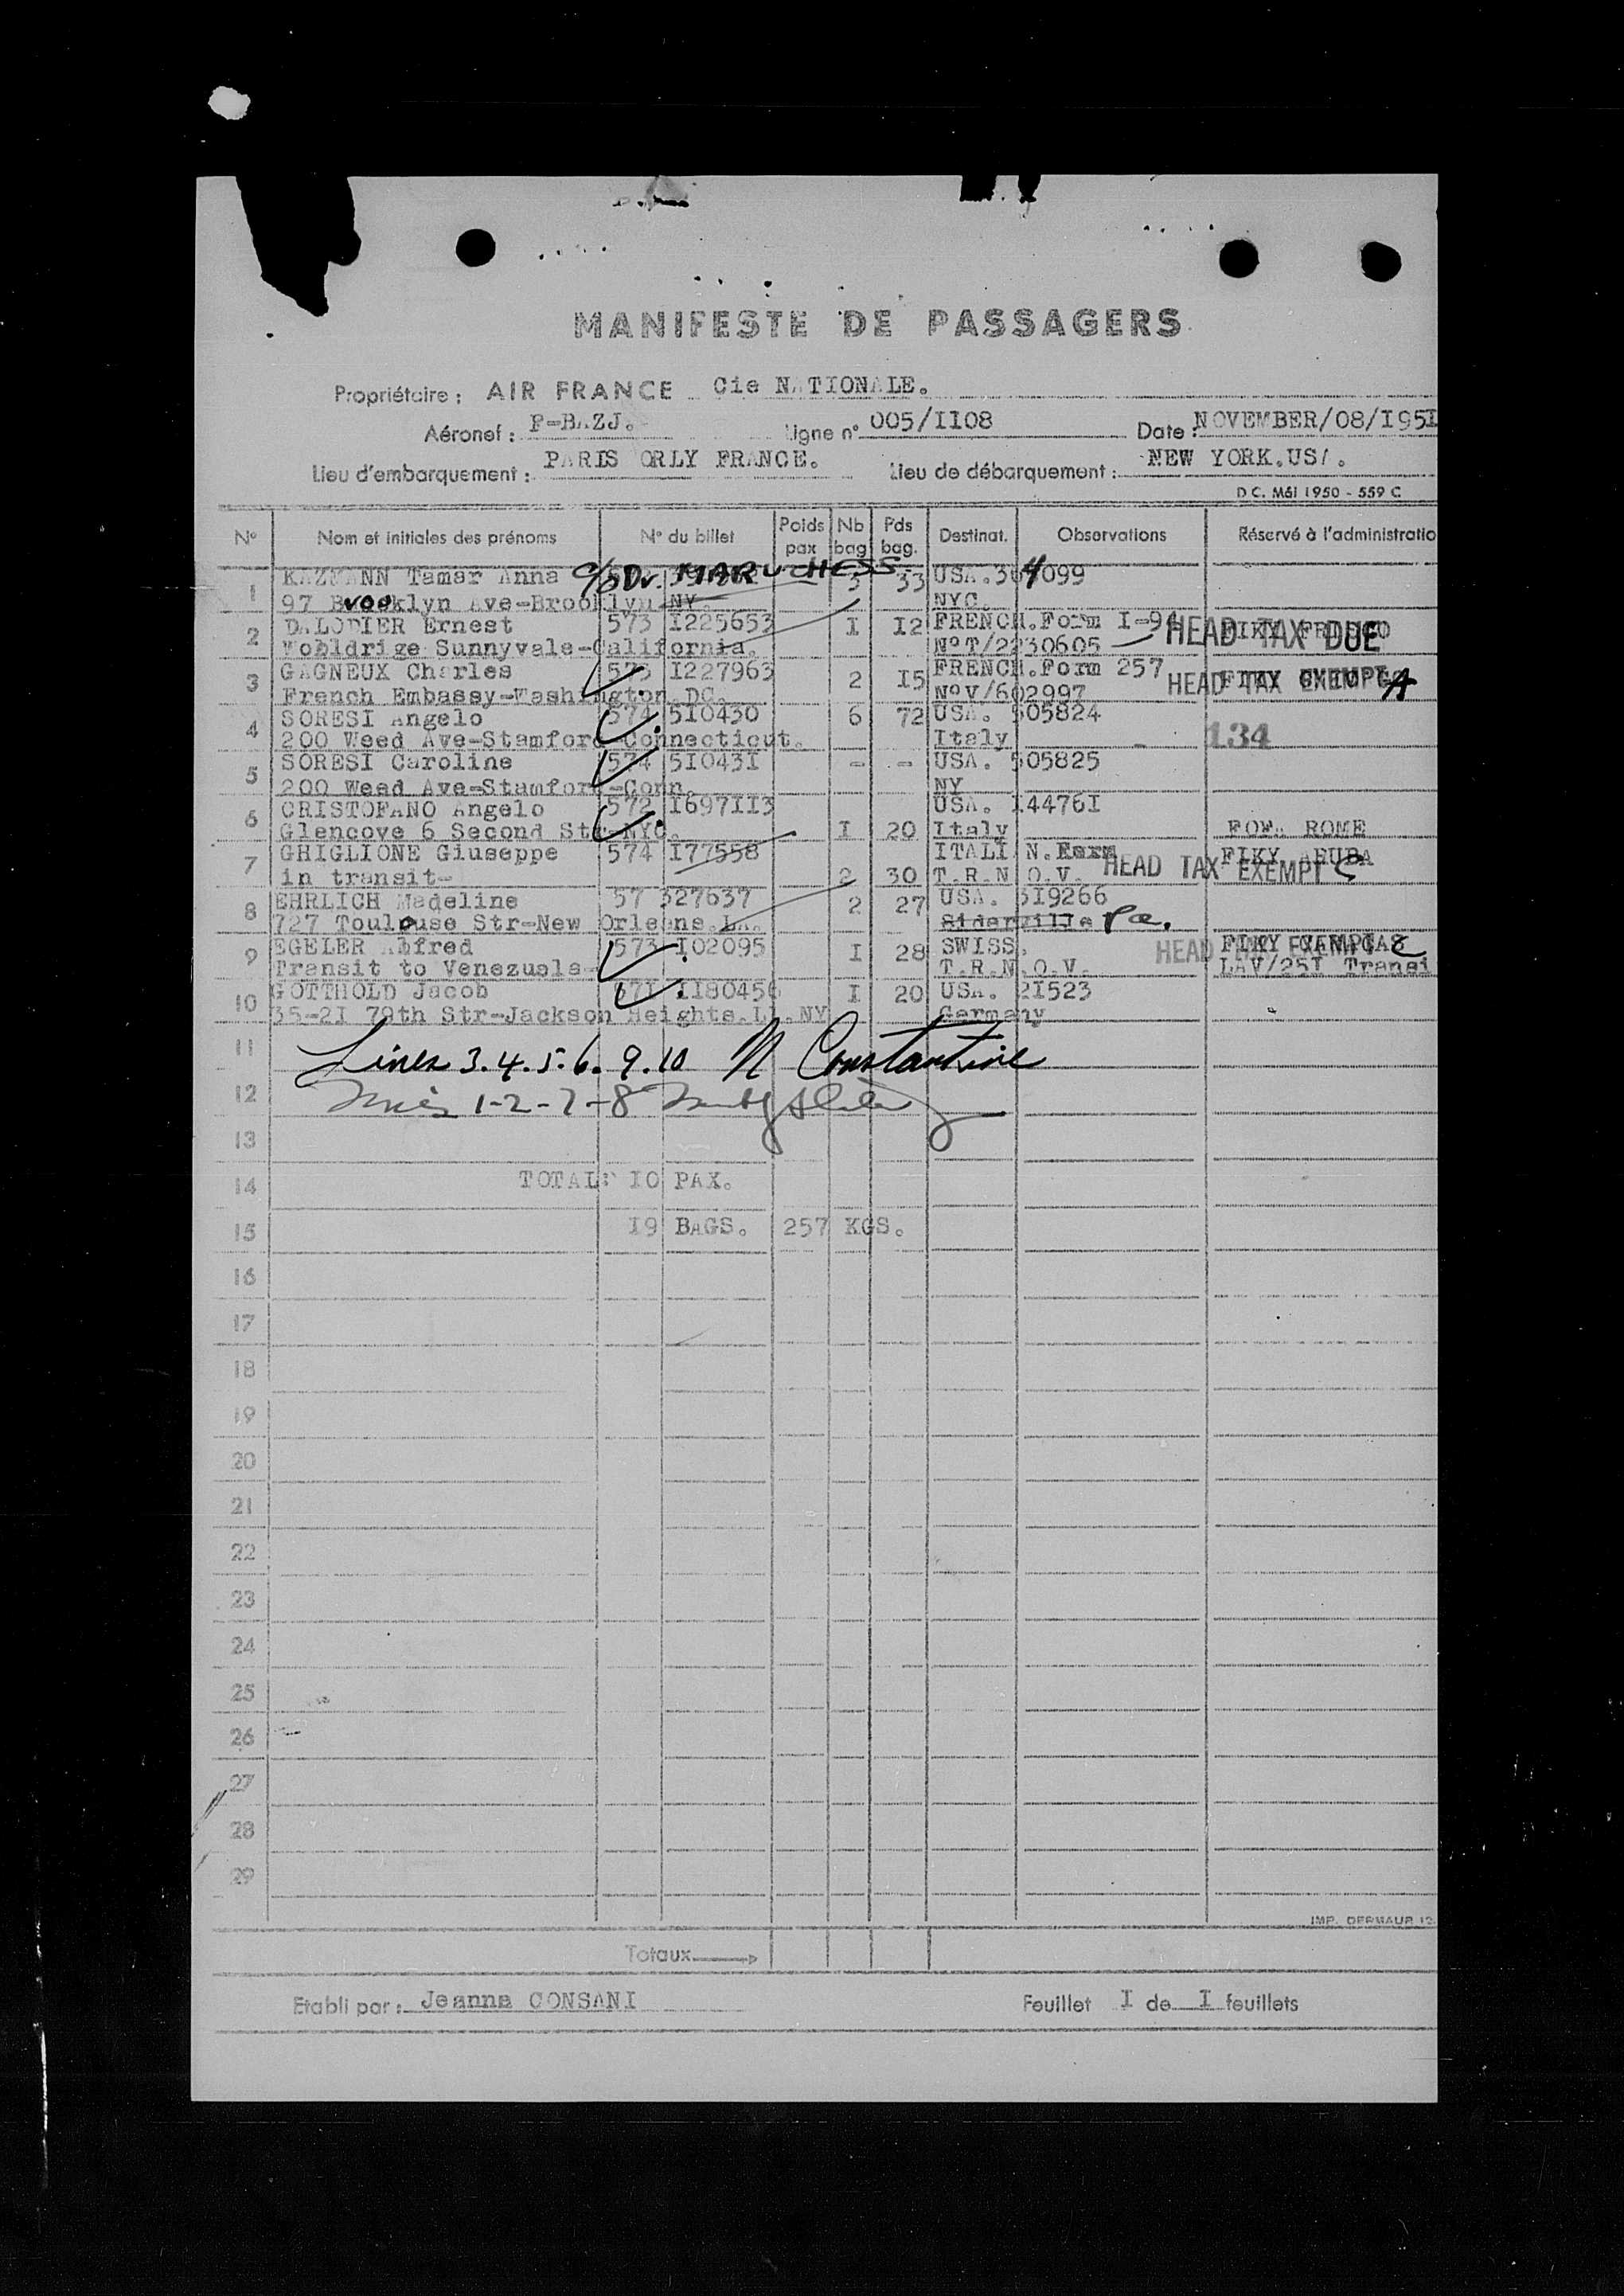 MANIFESTE DE PASSAGERS
Propriétaire : AIR FRANCE Cie NATIONALE.
Aéronef : F-BAZJ. Ligne n° 005/II08 Date : NOVEMBER/08/I95I
Lieu d'embarquement : PARIS ORLY FRANCE. Lieu de débarquement : NEW YORK.USA.
D C. Mai 1950 - 559 C
N° Nom et initiales des prénoms N° du billet Poids pax Nb bag Pds bag. Destinat. Observations Réservé à l'administratio
1 KAZMANN Tamar Anna c/o Dr. MARUCHESS 3 33 USA.364099
97 Brooklyn Ave-Brooklyn NY. NYC
2 DALODIER Ernest 573 I225653 I I2 FRENCH.Form I-94 HEAD TAX DUE
Wobldrige Sunnyvale-California. N°T/2230605
3 GAGNEUX Charles 573 I227963 2 I5 FRENCH.Form 257 HEAD TAX EXEMPT A
French Embassy-Washington.DC. N°V/602997
4 SORESI Angelo 574 5I0430 6 72 USA. 505824 134
200 Weed Ave-Stamford-Connecticut. Italy
5 SORESI Caroline 574 5I043I - - USA. 505825
200 Weed Ave-Stamford-Conn. NY
6 CRISTOFANO Angelo 572 I697II3 USA. I4476I
Glencove 6 Second Str-NYC. I 20 Italy ROME
7 GHIGLIONE Giuseppe 574 I77558 ITALIAN. FIKY ARUBA
in transit- 2 30 T.R.N.O.V. HEAD TAX EXEMPT C
8 EHRLICH Madeline 57 327637 2 27 USA. 3I9266
727 Toulouse Str-New Orleans.La. Pa.
9 EGELER Alfred 573 I02095 I 28 SWISS. HEAD TAX EXEMPT
Transit to Venezuela- T.R.N.O.V. LAV/25I Transi
10 GOTTHOLD Jacob 57I II80456 I 20 USA. 2I523
35-2I 79th Str-Jackson Heights.LI.NY Germany
11 Lines 3.4.5.6.9.10 N Constantine
12 1-2-7-8
13
14 TOTAL: IO PAX.
15 I9 BAGS. 257 KGS.
16
17
18
19
20
21
22
23
24
25
26
27
28
29
IMP. DERMAUR 12
Totaux
Etabli par : Jeanne CONSANI Feuillet I de I feuillets